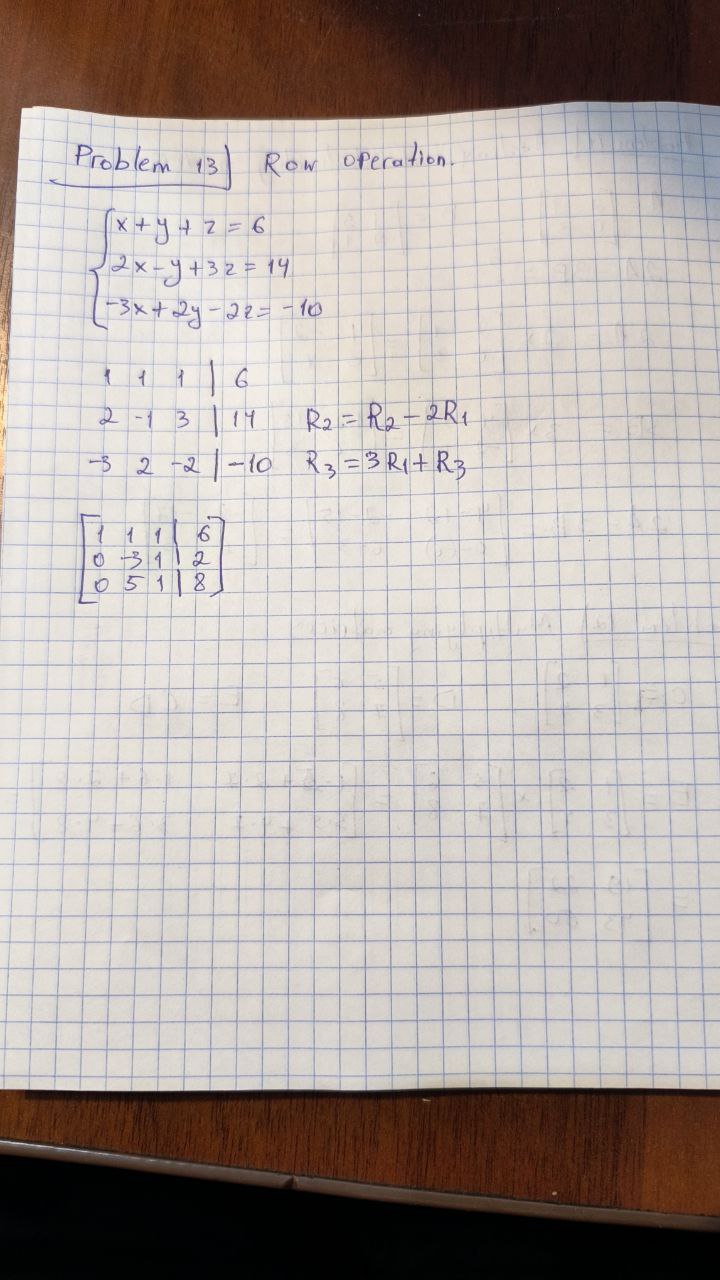 Problem 13) Row operation.
x+y+z=6
2x-y+3z=14
-3x+2y-2z=-10
1 1 1 | 6
2 -1 3 | 14 R2=R2-2R1
-3 2 -2 | -10 R3=3R1+R3
1 1 1 | 6
0 -3 1 | 2
0 5 1 | 8